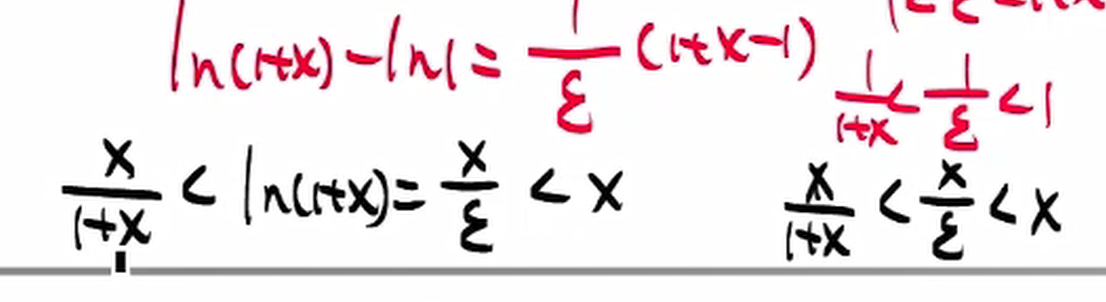 ln(1+x)-ln1=\frac{1}{ξ}(1+x-1)
\frac{1}{1+x}<\frac{1}{ξ}<1
\frac{x}{1+x}<ln(1+x)=\frac{x}{ξ}<x
\frac{x}{1+x}<\frac{x}{ξ}<x